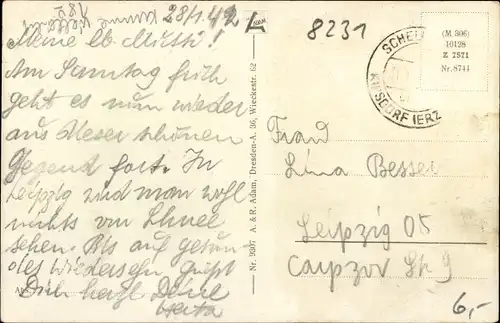 28/1.42
Meine lb. Mutti!
Am Sonntag früh
geht es nun wieder
aus dieser schönen
Gegend fort. In
Leipzig wird man wohl
nichts von Schnee
sehen. Bis auf gesun-
des Wiedersehn, grüßt
Dich herzl Deine
Herta
Nr. 9397 A. & R. Adam, Dresden-A. 36, Wieckestr. 62
8231
(M 306)
10128
Z 7571
Nr. 8744
Frau
Lina Besser
Leipzig O5
Carpzov Str 9
6,-